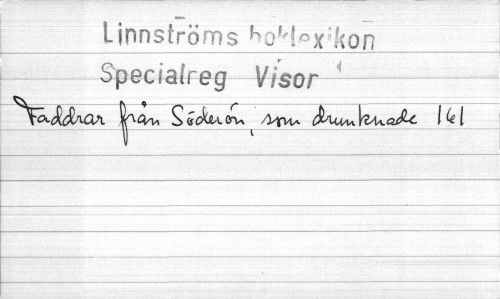 Linnströms boklexikon
Specialreg Visor
Faddrar från Söderön, som drunknade 161